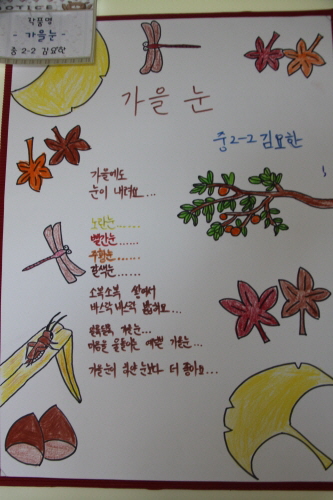 작품명
- 가을눈 -
중 2-2 김요한
가을 눈
중2-2 김요한
가을에도
눈이 내려요...
노란눈......
빨간눈......
주황눈......
갈색눈......
소복소복 쌓여서
바스락 바스락 밟혀요...
가을눈...
마음을 물들이는 예쁜 가을눈...
가을눈이 하얀 눈보다 더 좋아요...